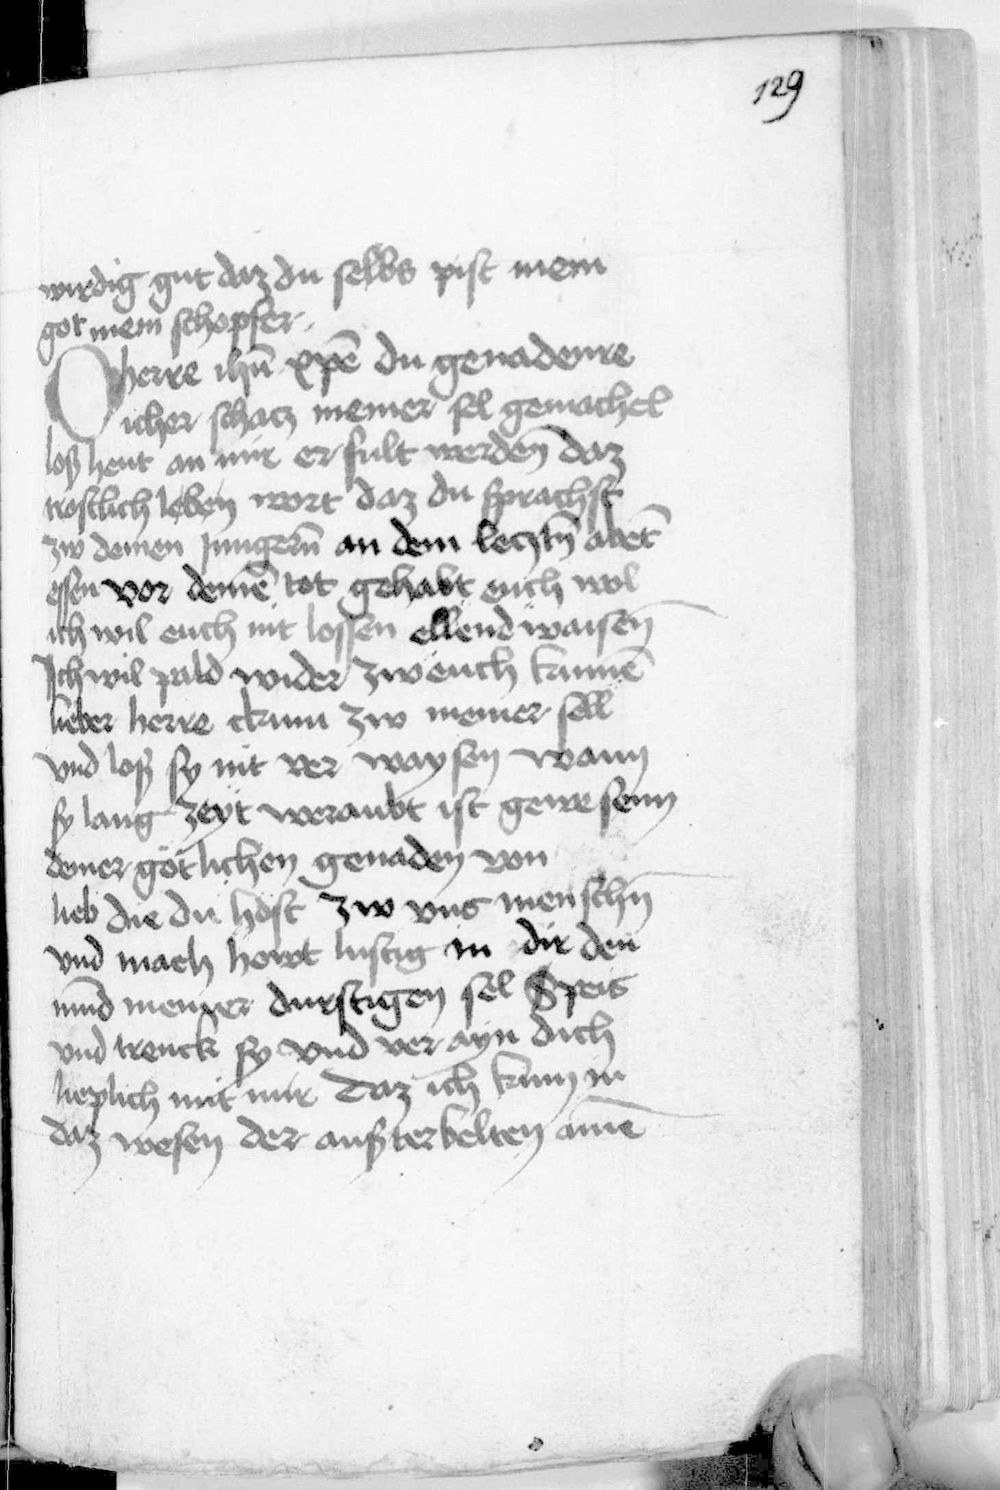 129
wirdig gut daz du selbs pist mein
got mein schopfer.
O herre ihū xpē du genadenre
icher schacz meiner sel gemachel
loß heut an mir erfult werden daz
trostlich leben wort daz du sprachst
zw deinen Jungerñ an dem leczstñ abēt
essen vor deinē tot gehabt euch wol
ich wil euch nit lossen ellend waisen
Ich wil pald wider zw euch kumē
lieber herre kum zw meiner sell
vnd loß sy nit ver waysen wann
sy lang zeyt weraubt ist gewesenn
deiner götlichen genaden von
lieb die du host zw vns menschn
vnd mach hewt lustig in dir den
mūd meiner durstigen sel Speis
vnd trenck sy vnd ver ayn dich
lieplich mit mir daz ich kum in
daz wesen der außterbelten amē